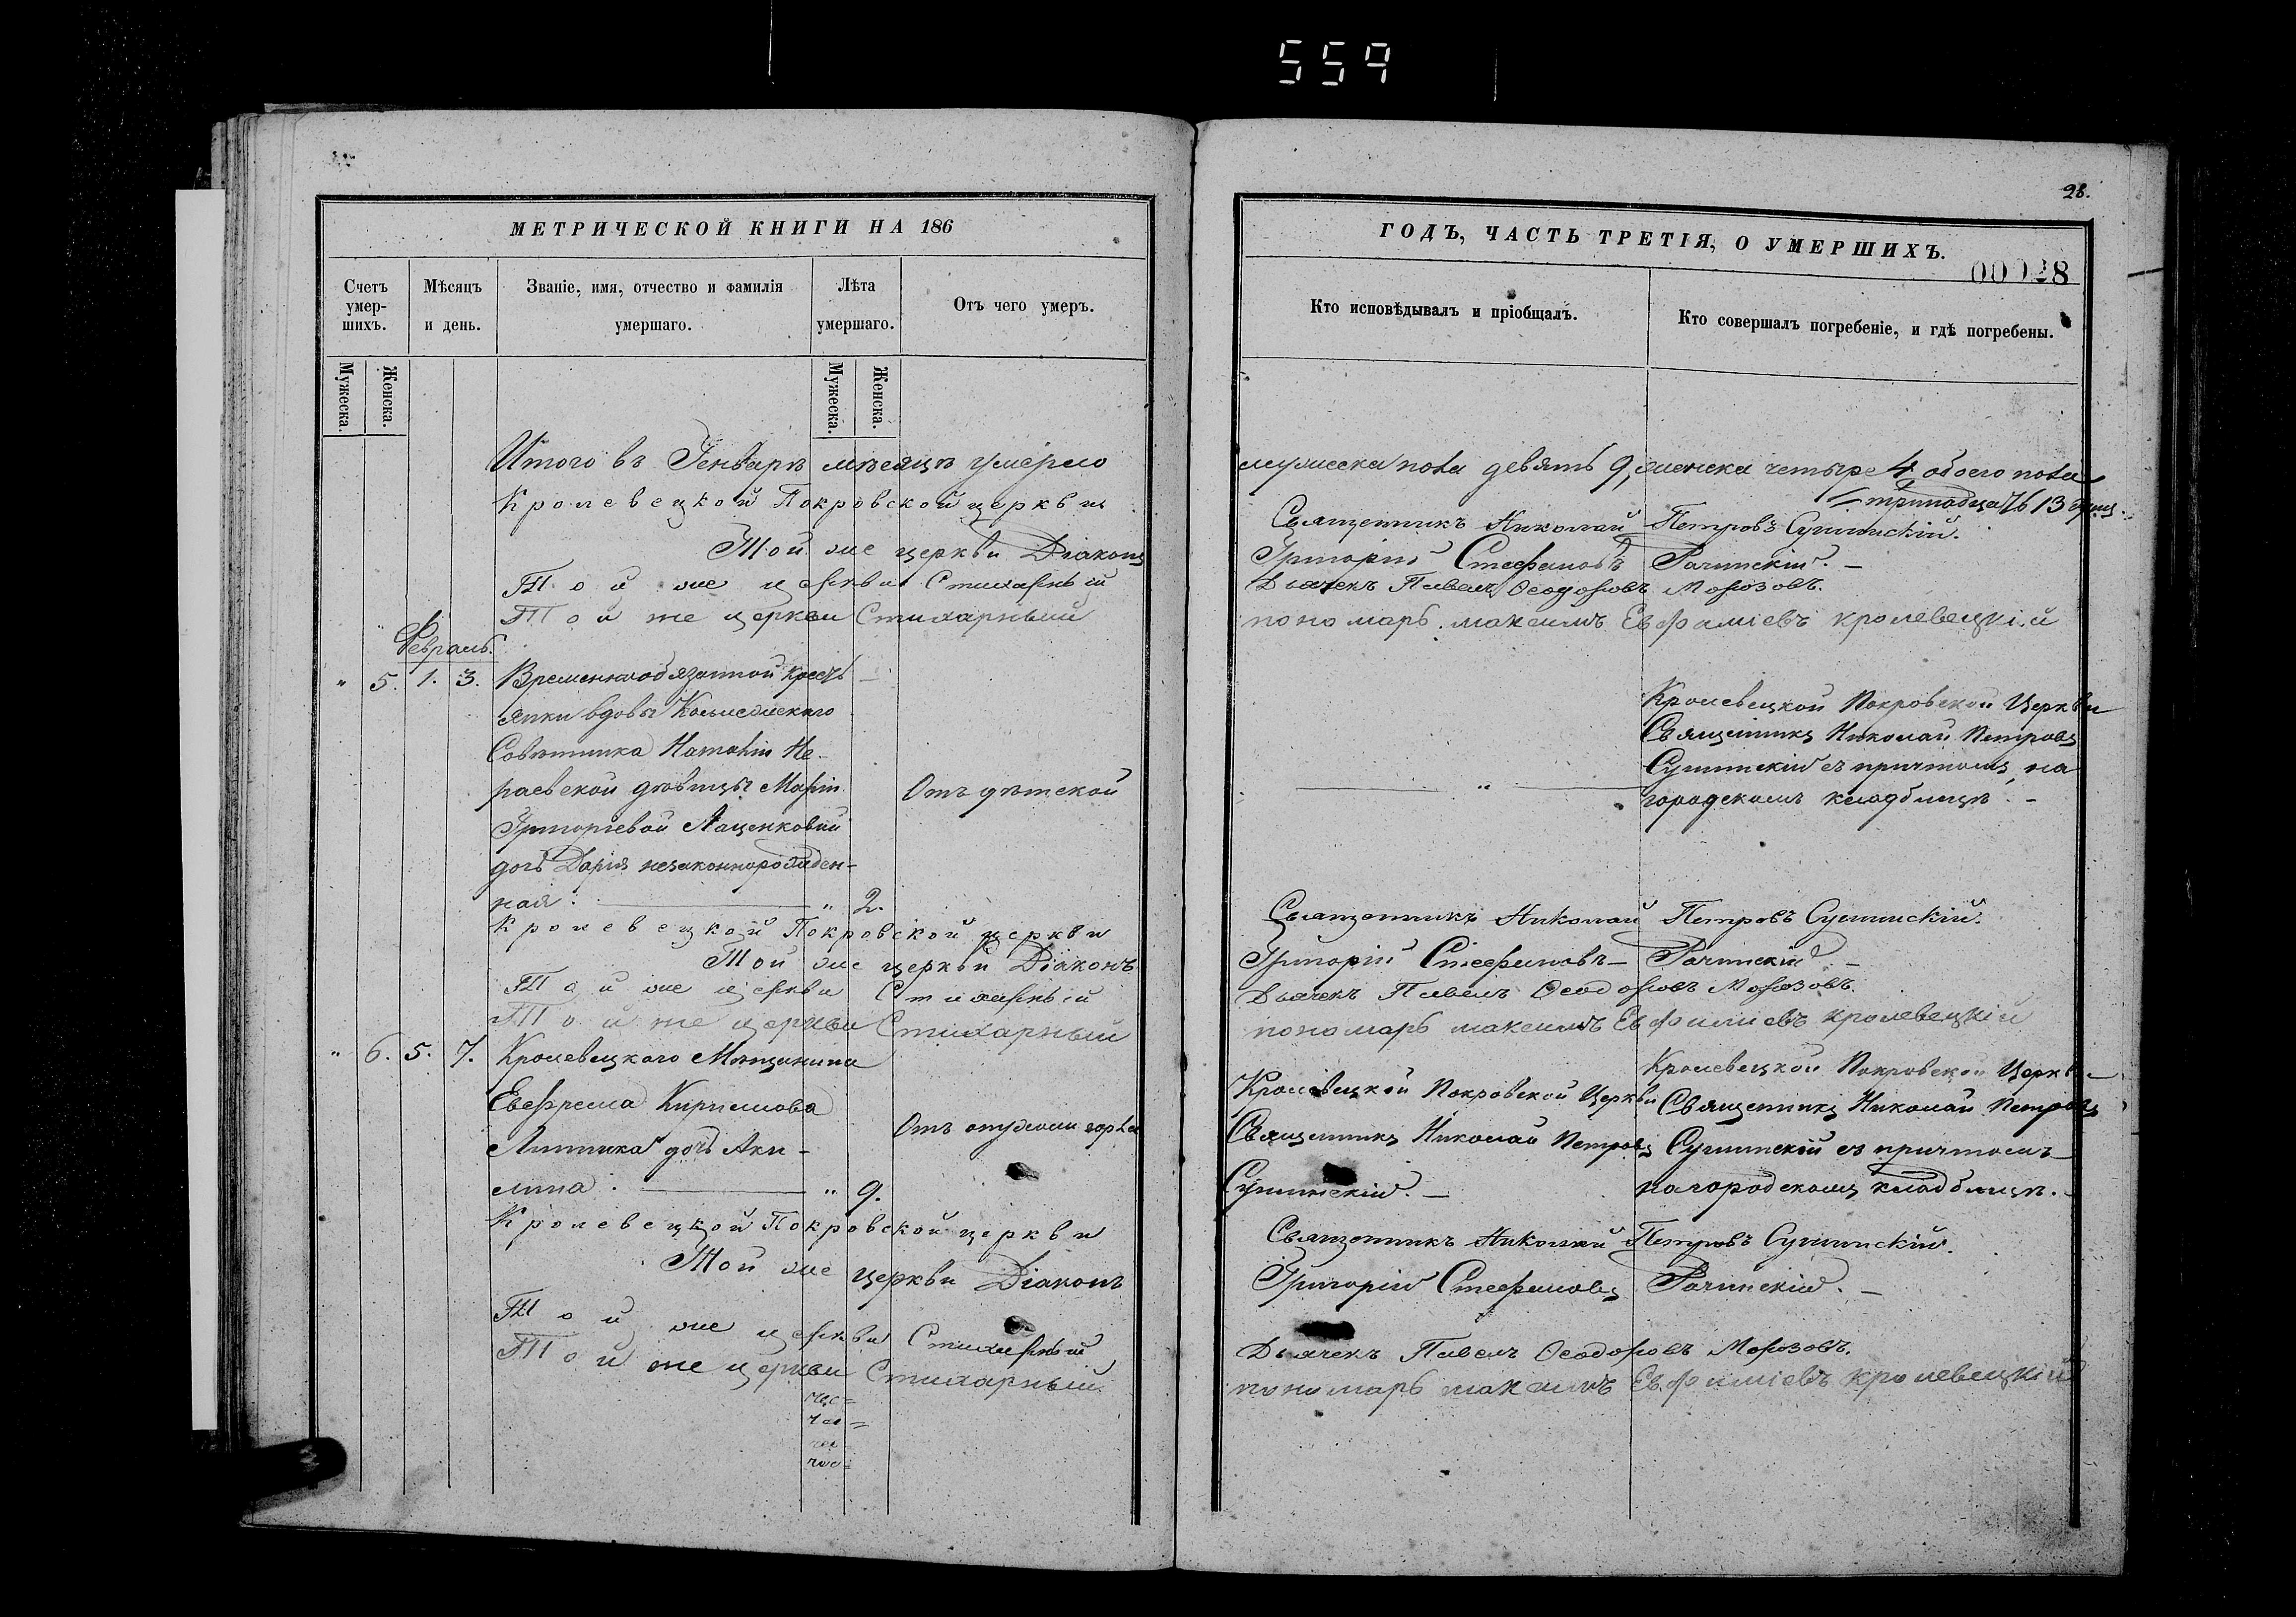 559
28.
МЕТРИЧЕСКОЙ КНИГИ НА 186
ГОДЪ, ЧАСТЬ ТРЕТІЯ, О УМЕРШИХЪ.
00028
Счетъ умер-шихъ.
Мѣсяцъ и день.
Званіе, имя, отчество и фамилія умершаго.
Лѣта умершаго.
Отъ чего умеръ.
Кто исповѣдывалъ и пріобщалъ.
Кто совершалъ погребеніе, и гдѣ погребены.
Мужеска.
Женска.
Мужеска.
Женска.
Итого въ Генварѣ мѣсяцѣ умерло мужеска пола девять 9, женска четыре 4 обоего пола
тринадцать 13 душ.
Кролевецкой Покровской церкви Священникъ Николай Петровъ Сушинскій.
Той же церкви Діаконъ Григорій Стефановъ Рачинскій. —
Той же церкви Стихарный Дьячекъ Павелъ Ѳеодоровъ Морозовъ.
Той же церкви Стихарный пономарь максимъ Евфиміевъ кролевецкій
Февраль.
" 5. 1. 3. Временнообязанной кресть
янки вдовы Колležскаго
Совѣтника Наталіи Не-
раевской дѣвицы Маріи
Григоріевой Лащенковой
дочь Дарія незаконнорожден-
ная. " 2.
Отъ дѣтской
"
Кролевецкой Покровской Церкви
Священникъ Николай Петровъ
Сушинскій съ причтомъ, на
городскомъ кладбищѣ. —
Кролевецкой Покровской церкви Священникъ Николай Петровъ Сушинскій.
Той же церкви Діаконъ Григорій Стефановъ — Рачинскій —
Той же церкви Стихарный Дьячекъ Павелъ Ѳеодоровъ Морозовъ.
Той же церкви Стихарный пономарь максимъ Евфиміевъ кролевецкій
" 6. 5. 7. Кролевецкаго Мѣщанина
Евефрема Кирилова
Литвика дочь Аки-
лина. " 9.
Отъ опухоли горла
Кролевецкой Покровской Церкви
Священникъ Николай Петровъ
Сушинскій. —
Кролевецкой Покровской Церкви
Священникъ Николай Петровъ
Сушинскій съ причтомъ
на городскомъ кладбищѣ.
Кролевецкой Покровской церкви Священникъ Николай Петровъ Сушинскій.
Той же церкви Діаконъ Григорій Стефановъ Рачинскій. —
Той же церкви Стихарный Дьячекъ Павелъ Ѳеодоровъ Морозовъ.
Той же церкви Стихарный пономарь максимъ Евфиміевъ кролевецкій